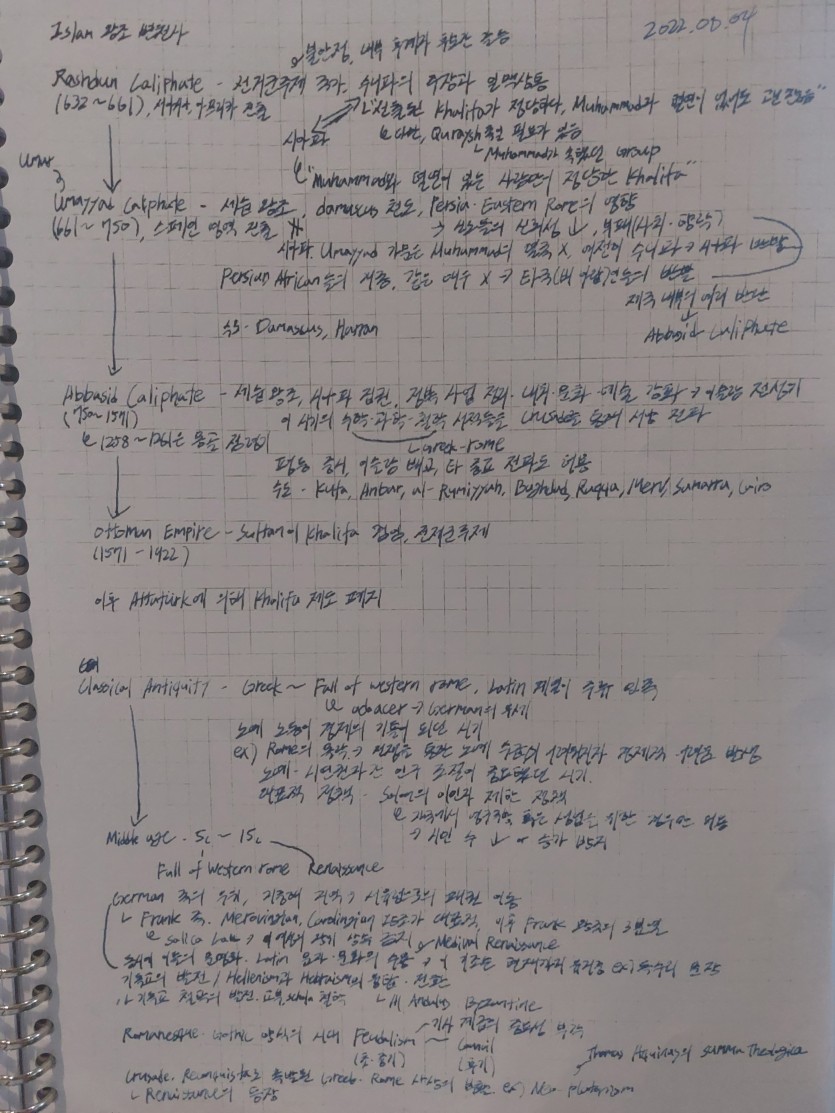 Islan 왕조 변천사
2022.00.04
불안정, 내부 후계자 후보간 갈등
Rashdun Caliphate - 선거군주제 국가, 수니파의 주장과 일맥상통
(632~661), 시나이, 아프리카 진출
"선출된 Khalifa가 정당하다, Muhammad과 혈연이 없어도 괜찮음"
시아파
다만, Quraysh족일 필요가 있음
Muhammad가 속했던 Group
"Muhammad와 혈연이 있는 사람만이 정당한 Khalifa"
Umayyad Caliphate - 세습 왕조, damascus 천도, Persia·Eastern Rome의 영향
(661~750), 스페인 영역 진출
↓, 부패(사회·향락)
시아파. Umayyad 가문은 Muhammad의 혈족 X, 여전히 수니파 → 시아파 반발
Persian African들의 차별, 같은 예우 X → 타국(비 아랍)인들의 반발
제국 내부의 여러 반란
↓
Abbasid Caliphate
수도 - Damascus, Harran
Abbasid Caliphate - 세습 왕조, 시아파 집권, 정복 사업 정리·내치·문화·예술 강화 → 이슬람 전성기
(750~1571)
이 시기의 수학·과학·철학 서적들을 Crusade를 통해 서방 전파
Greek-rome
1258~1261은 몽골 점령기
평등 중시, 이슬람 배교, 타 종교 전파도 허용
수도 - Kufa, Anbar, al-Rumiyyah, Baghdad, Raqqa, Merv, Samarra, Cairo
Ottoman Empire - Sultan이 Khalifa 겸임, 전제군주제
(1571-1922)
이후 Attaturk에 의해 Khalifa 제도 폐지
Classical Antiquity - Greek ~ Fall of western rome, Latin 계열이 주류 민족
odoacer → German의 무세
노예 노동이 경제의 기둥이 되던 시기
ex) Rome의 몰락 → 전쟁을 통한 노예 수급이 어려워지자 경제적 어려움 발생
노예·시민권자 간 인구 조절이 중요했던 시기.
대표적 정책 - Solon의 이민자 제한 정책
→ 시민 수 ↓ or 증가 방지
Middle age - 5c ~ 15c
Fall of Western rome
Renaissance
German 족의 우위, 지중해 지역 → 서유럽으로의 패권 이동
Frank 족. Merovingian, Carolingian 왕조가 대표적, 이후 Frank 왕국의 3분열
Salica Law → 여성의 왕위 상속 금지
Medival Renaissance
기독교의 발전 / Hellenism과 Hebraism의 융합·전환
기독교 철학의 발전. 교부, schola 철학
Al Andalus Byzantine
Romanesque·Gothic 양식의 시대
Feudalism ~ Council
기사 계급의 중요성 부각
(초·중기)
(후기)
Thomas Aquinas의 Summa Theologica
Crusade·Reconquista로 촉발된 Greek·Rome 사상의 발전 ex) Neo-platonism
Renaissance의 등장